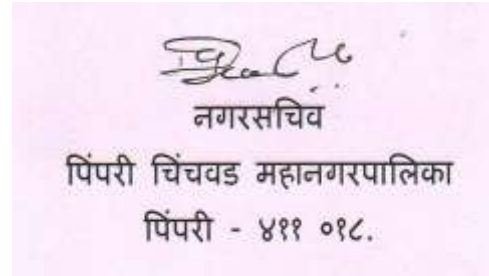 नगरसचिव
पिंपरी चिंचवड महानगरपालिका
पिंपरी - ४११ ०१८.